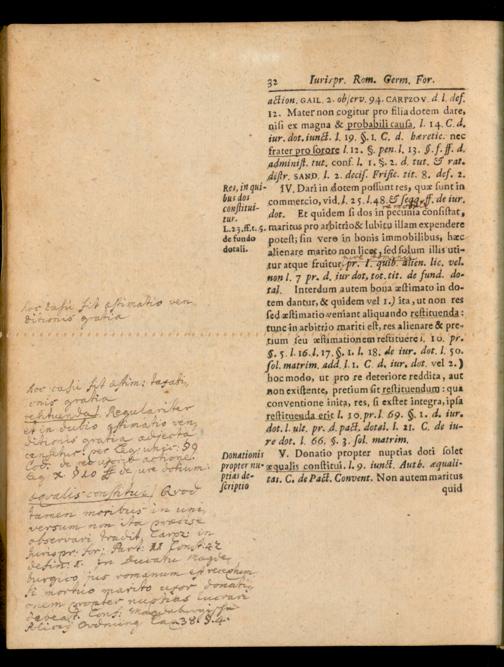 32 Iurispr. Rom. Germ. For.
action. GAIL. 2. observ. 94. CARPZOV. d. l. def.
12. Mater non cogitur pro filia dotem dare,
nisi ex magna & probabili causa, l. 14. C. d.
iur. dot. iunct. l. 19. §. 1. C. d. hæretic. nec
frater pro sorore l. 12. §. pen. l. 13. §. f. ff. d.
administ. tut. conf. l. 1. §. 2. d. tut. & rat.
distr. SAND. l. 2. decis. Frisic. tit. 8. def. 2.
Res, in qui-
bus dos
constitui-
tur.
L. 23. ff. t. 5.
de fundo
dotali.
IV. Dari in dotem possunt res, quæ sunt in
commercio, vid. l. 25. l. 48. & seqq. ff. de iur.
dot. Et quidem si dos in pecunia consistat,
maritus pro arbitrio & lubitu illam expendere
potest; sin vero in bonis immobilibus, hæc
alienare marito non licet, sed solum illis uti-
tur atque fruitur, pr. I. quib. alien. lic. vel.
non l. 7 pr. d. iur dot, tot. tit. de fund. do-
tal. Interdum autem bona æstimato in do-
tem dantur, & quidem vel 1.) ita, ut non res
sed æstimatio veniant aliquando restituenda:
tunc in arbitrio mariti est, res alienare & pre-
tium seu æstimationem restituere l. 10. pr.
§. 5. l. 16. l. 17. §. 1. l. 18. de iur. dot. l. 50.
sol. matrim. add. l. 1. C. d. iur. dot. vel 2.)
hoc modo, ut pro re deteriore reddita, aut
non existente, pretium sit restituendum: qua
conventione inita, res, si exstet integra, ipsa
restituenda erit l. 10. pr. l. 69. §. 1. d. iur.
dot. l. ult. pr. d. pact. dotal. l. 21. C. de iu-
re dot. l. 66. §. 3. sol. matrim.
Donationis
propter nu-
ptias de-
scriptio
V. Donatio propter nuptias doti solet
æqualis constitui, l. 9. iunct. Auth. æquali-
tas. C. de Pact. Convent. Non autem maritus
quid
hoc casu fit æstimatio ven
ditionis gratia
hoc casu fit æstim: taxati
onis gratia
restituenda] Regulariter
et in dubio æstimatio ven
ditionis gratia adjecta
censetur
æqualis constitui] Quod
tamen moribus in uni
versum non ita præcise
observari tradit Carpz: in
Jurispr: for: Part: II Const: 42
defin: 8. in Ducatu Magde
burgico, jus romanum est receptum
si mortuo marito uxor donati
onem propter nuptias lucrari
debeat. Conf: Magdeburgische
Ordnung Cap 38. §. 4.